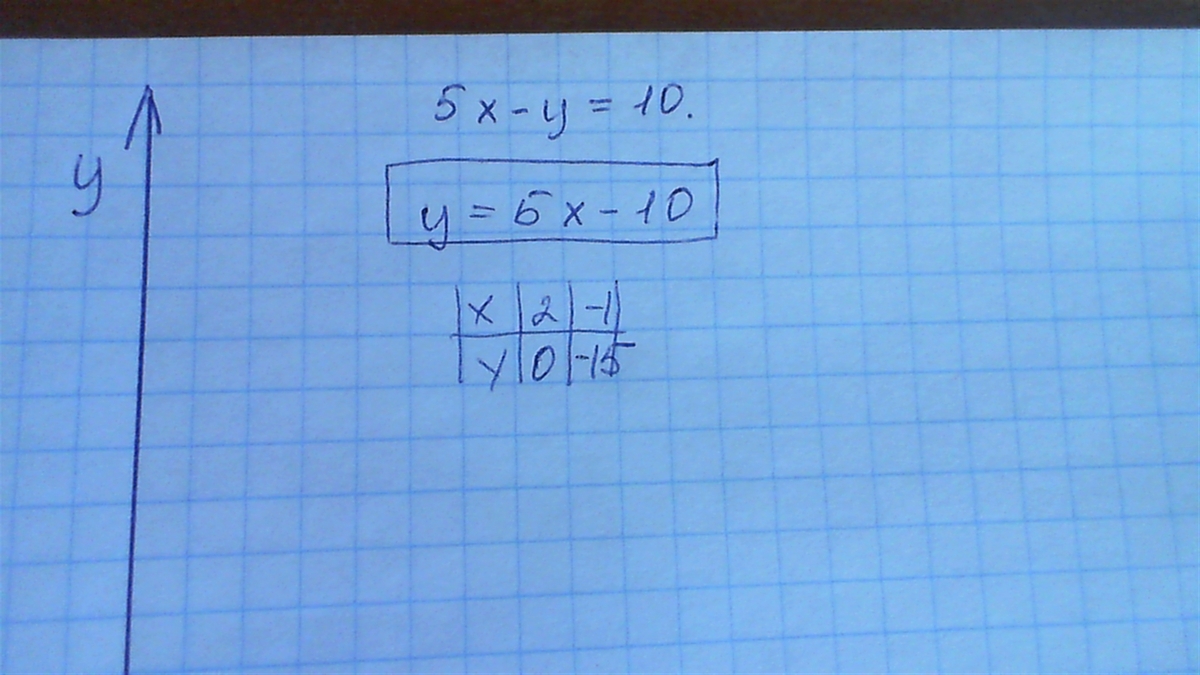 5x-y=10.
y
y=5x-10
x 2 -1
y 0 -15